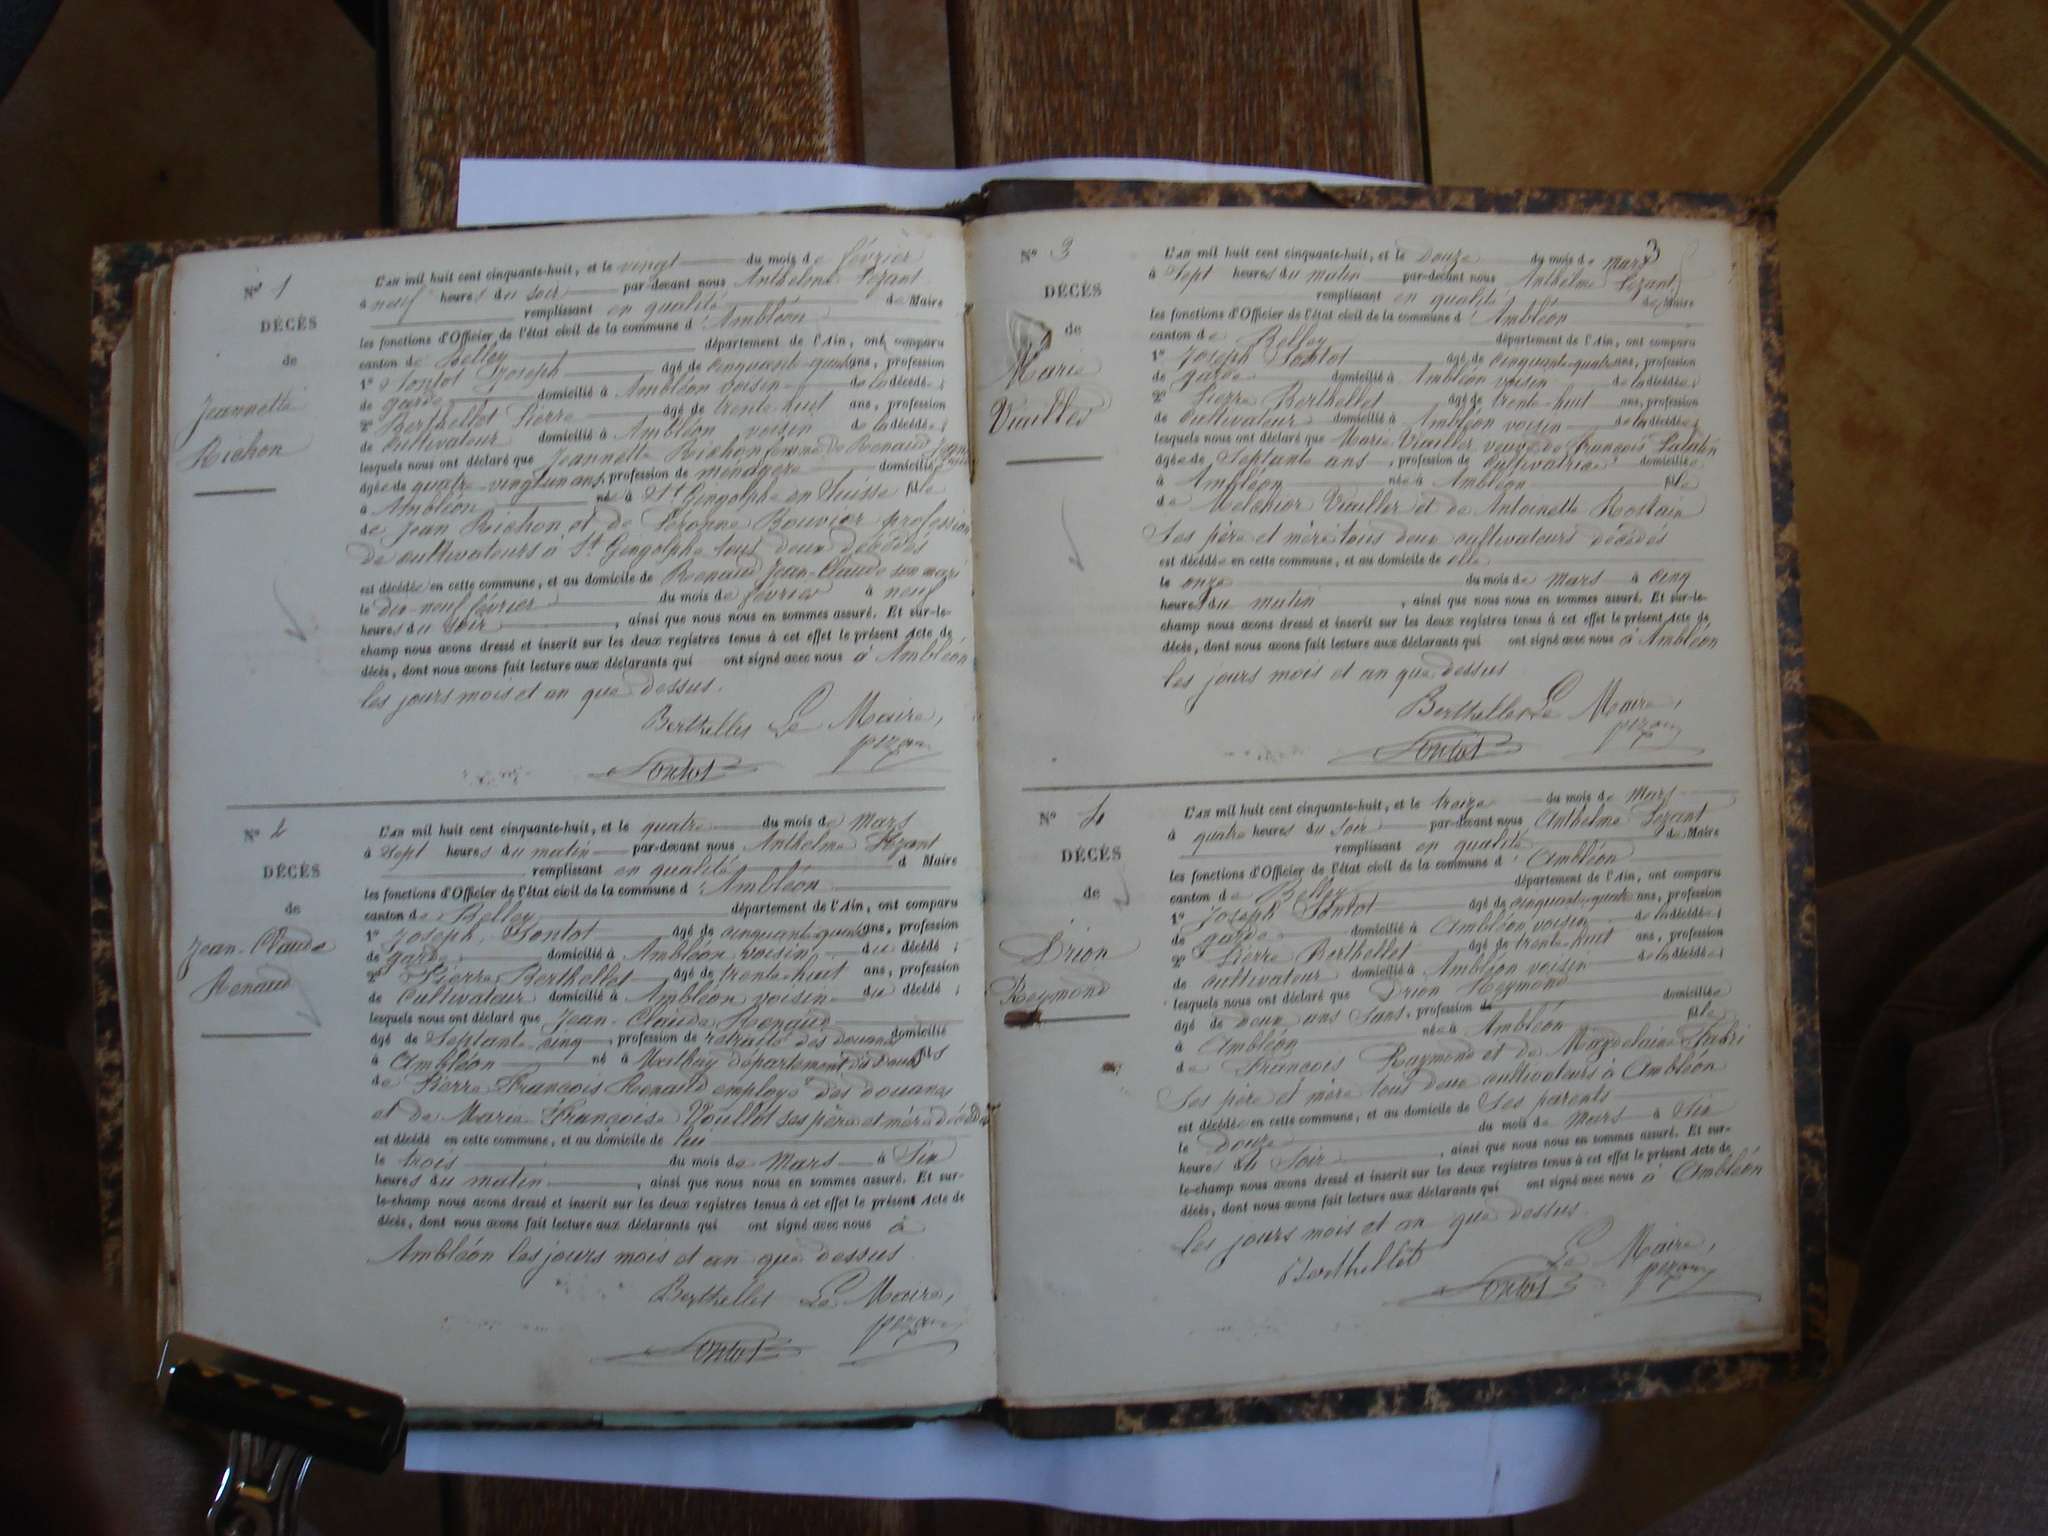 N° 1
DÉCÈS
de
Jeannette
Richon
L'an mil huit cent cinquante-huit, et le vingt du mois de février
à neuf heures du soir par-devant nous Anthelme Pezant
remplissant en qualité de Maire
les fonctions d'Officier de l'état civil de la commune d'Ambléon
canton de Belley département de l'Ain, ont comparu
1° Pontot Joseph âgé de cinquant-quatre ans, profession
de garde domicilié à Ambléon voisin de la décédée;
2° Berthellet Pierre âgé de trente-huit ans, profession
de cultivateur domicilié à Ambléon voisin de la décédée;
lesquels nous ont déclaré que Jeannette Richon femme de Renaud Jean
âgée de quatre-vingt un ans, profession de ménagère domiciliée
à Ambléon née à St Gingolphe en Suisse fille
de Jean Richon et de Pézonne Bouvier profession
de cultivateurs à St Gingolphe tous deux décédés
est décédée en cette commune, et au domicile de Renaud Jean-Claude son mari
le dix-neuf février du mois de février à neuf
heures du soir, ainsi que nous nous en sommes assuré. Et sur-le-
champ nous avons dressé et inscrit sur les deux registres tenus à cet effet le présent Acte de
décès, dont nous avons fait lecture aux déclarants qui ont signé avec nous à Ambléon
les jours mois et an que dessus.
Berthellet Le Maire,
Pontot pezant
N° 2
DÉCÈS
de
Jean-Claude
Renaud
L'an mil huit cent cinquante-huit, et le quatre du mois de Mars
à Sept heures du matin par-devant nous Anthelme Pezant
remplissant en qualité d Maire
les fonctions d'Officier de l'état civil de la commune d'Ambléon
canton de Belley département de l'Ain, ont comparu
1° Joseph Pontot âgé de cinquant-quatre ans, profession
de garde domicilié à Ambléon voisin du décédé;
2° Pierre Berthellet âgé de trente-huit ans, profession
de Cultivateur domicilié à Ambléon voisin du décédé;
lesquels nous ont déclaré que Jean-Claude Renaud
âgé de Septante-cinq, profession de retraité des douanes domicilié
à Ambléon né à Mathay département du Doubs fils
de Pierre François Renaud employé des douanes
et de Marie Françoise Voullot ses père et mère décédés
est décédé en cette commune, et au domicile de lui
le trois du mois de Mars à Six
heures du matin, ainsi que nous nous en sommes assuré. Et sur-
le-champ nous avons dressé et inscrit sur les deux registres tenus à cet effet le présent Acte de
décès, dont nous avons fait lecture aux déclarants qui ont signé avec nous à
Ambléon les jours mois et an que dessus
Berthellet Le Maire,
Pontot pezant
3
N° 3
DÉCÈS
de
Marie
Viailler
L'an mil huit cent cinquante-huit, et le Douze du mois de mars
à Sept heures du matin par-devant nous Anthelme Pezant
remplissant en qualité de Maire
les fonctions d'Officier de l'état civil de la commune d'Ambléon
canton de Belley département de l'Ain, ont comparu
1° Joseph Pontot âgé de cinquante-quatre ans, profession
de garde domicilié à Ambléon voisin de la décédée;
2° Pierre Berthellet âgé de trente-huit ans, profession
de cultivateur domicilié à Ambléon voisin de la décédée;
lesquels nous ont déclaré que Marie Viailler veuve de François Palatin
âgée de Septante ans, profession de Cultivatrice domiciliée
à Ambléon née à Ambléon fille
de Melchior Viailler et de Antoinette Rostain
Ses père et mère tous deux cultivateurs décédés
est décédée en cette commune, et au domicile de elle
le onze du mois de mars à cinq
heures du matin, ainsi que nous nous en sommes assuré. Et sur-le-
champ nous avons dressé et inscrit sur les deux registres tenus à cet effet le présent Acte de
décès, dont nous avons fait lecture aux déclarants qui ont signé avec nous à Ambléon
les jours mois et an que dessus
Berthellet Le Maire,
Pontot pezant
N° 4
DÉCÈS
de
Drion
Reymond
L'an mil huit cent cinquante-huit, et le treize du mois de Mars
à quatre heures du soir par-devant nous Anthelme Pezant
remplissant en qualité de Maire
les fonctions d'Officier de l'état civil de la commune d'Ambléon
canton de Belley département de l'Ain, ont comparu
1° Joseph Pontot âgé de cinquant-quatre ans, profession
de garde domicilié à Ambléon voisin de la décédée;
2° Pierre Berthellet âgé de trente-huit ans, profession
de cultivateur domicilié à Ambléon voisin de la décédée;
lesquels nous ont déclaré que Drion Reymond
âgé de Deux ans Sans, profession de domiciliée
à Ambléon née à Ambléon fille
de François Raymond et de Magdelaine Fabri
Ses père et mère tous deux cultivateurs à Ambléon
est décédée en cette commune, et au domicile de Ses parents
le Douze du mois de Mars à Six
heures du Soir, ainsi que nous nous en sommes assuré. Et sur-
le-champ nous avons dressé et inscrit sur les deux registres tenus à cet effet le présent Acte de
décès, dont nous avons fait lecture aux déclarants qui ont signé avec nous à Ambléon
les jours mois et an que dessus.
Berthellet Le Maire,
Pontot pezant